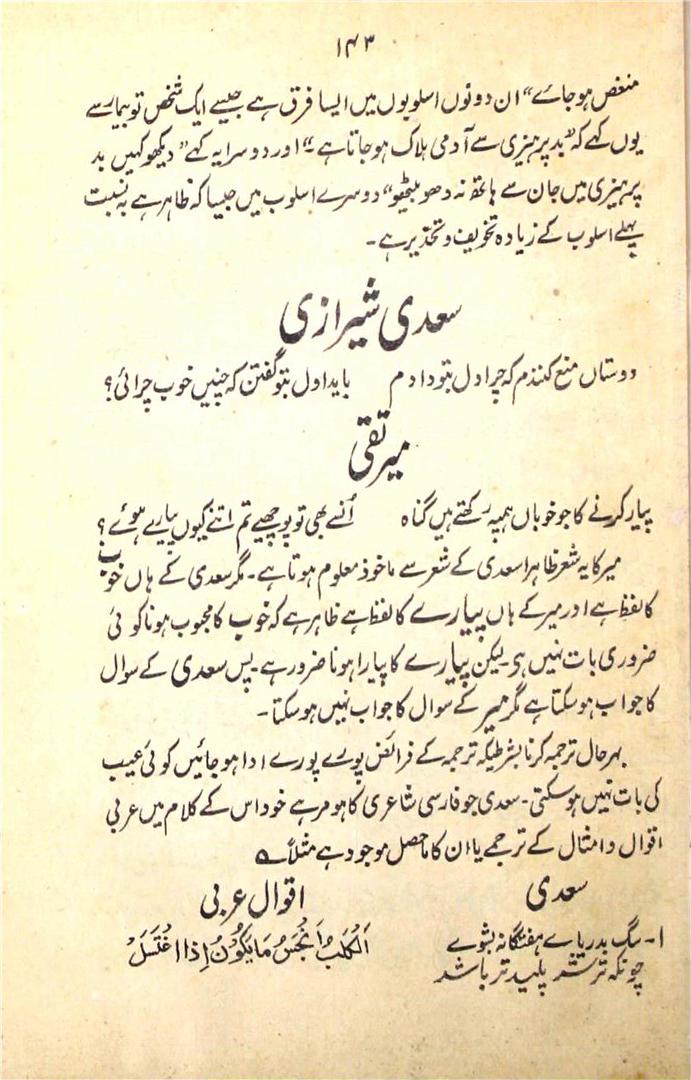 ۱۴۳
منغص ہو جائے“ ان دونوں اسلوبوں میں ایسا فرق ہے جیسے ایک شخص تو بیمار سے
یوں کہے کہ ”بد پرہیزی سے آدمی ہلاک ہو جاتا ہے“ اور دوسرا یہ کہے ”دیکھو کہیں بد
پرہیزی میں جان سے ہاتھ نہ دھو بیٹھیو“ دوسرے اسلوب میں جیسا کہ ظاہر ہے بہ نسبت
پہلے اسلوب کے زیادہ تخویف و تحذیر ہے۔
سعدی شیرازی
دوستاں منع کنندم کہ چرا دل بتو دادم باید اول بتو گفتن کہ چنیں خوب چرائی؟
میر تقی
پیار کرنے کا جو خوباں ہم پہ رکھتے ہیں گناہ اُنسے بھی تو پوچھیے تم اتنے کیوں پیارے ہوئے؟
میر کا یہ شعر ظاہرا سعدی کے شعر سے ماخوذ معلوم ہوتا ہے۔ مگر سعدی کے ہاں خوب
کا لفظ ہے اور میر کے ہاں پیارے کا لفظ ہے ظاہر ہے کہ خوب کا محبوب ہونا کوئی
ضروری بات نہیں ہی۔ لیکن پیارے کا پیارا ہونا ضرور ہے۔ پس سعدی کے سوال
کا جواب ہو سکتا ہے مگر میر کے سوال کا جواب نہیں ہو سکتا۔
بہرحال ترجمہ کرنا بشرطیکہ ترجمہ کے فرائض پورے پورے ادا ہو جائیں کوئی عیب
کی بات نہیں ہو سکتی۔ سعدی جو فارسی شاعری کا ہومر ہے خود اس کے کلام میں عربی
اقوال و امثال کے ترجمے یا ان کا ماحصل موجود ہے مثلاً
سعدی اقوال عربی
۱۔ سگ بدریاے ہفتگانہ بشوے اَلْکَلْبُ اَنْجَسُ مَا یَکُوْنُ اِذَا اغْتَسَلَ
چونکہ تر شد پلید تر باشد